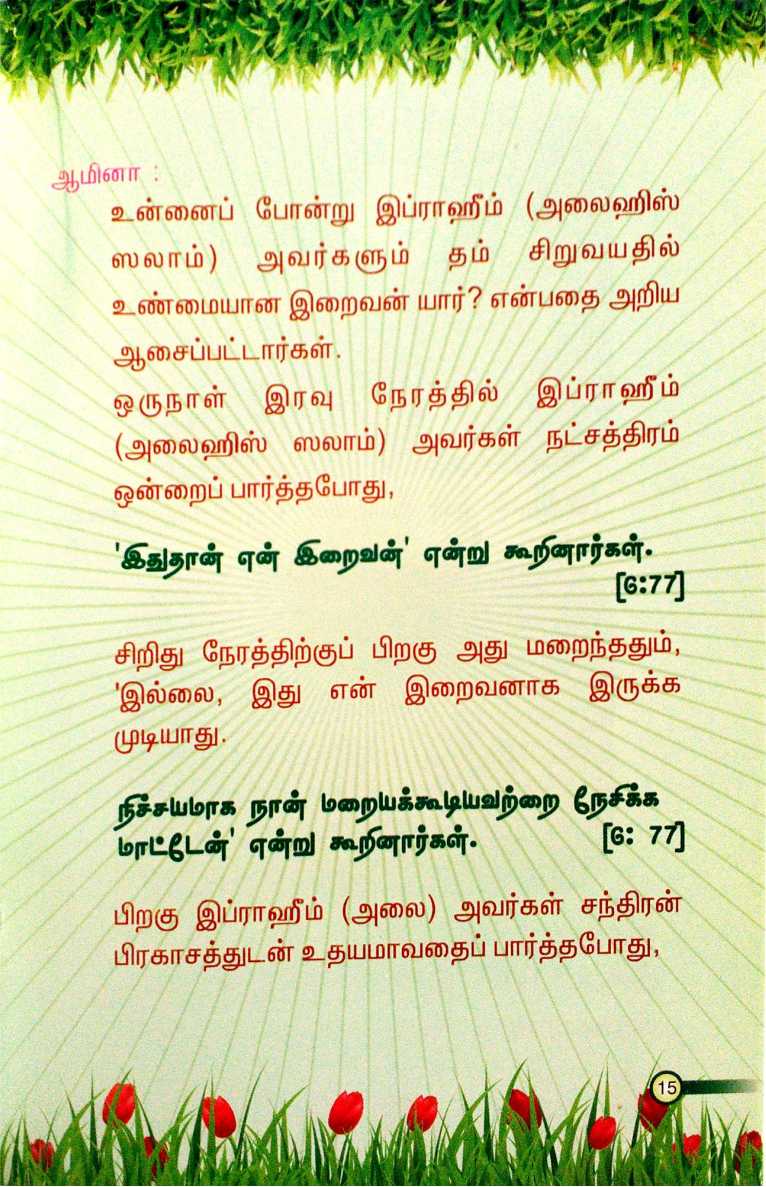 ஆமினா :
உன்னைப் போன்று இப்ராஹீம் (அலைஹிஸ்
ஸலாம்) அவர்களும் தம் சிறுவயதில்
உண்மையான இறைவன் யார்? என்பதை அறிய
ஆசைப்பட்டார்கள்.
ஒருநாள் இரவு நேரத்தில் இப்ராஹீம்
(அலைஹிஸ் ஸலாம்) அவர்கள் நட்சத்திரம்
ஒன்றைப் பார்த்தபோது,
'இதுதான் என் இறைவன்' என்று கூறினார்கள்.
[6:77]
சிறிது நேரத்திற்குப் பிறகு அது மறைந்ததும்,
'இல்லை, இது என் இறைவனாக இருக்க
முடியாது.
நிச்சயமாக நான் மறையக்கூடியவற்றை நேசிக்க
மாட்டேன்' என்று கூறினார்கள். [6: 77]
பிறகு இப்ராஹீம் (அலை) அவர்கள் சந்திரன்
பிரகாசத்துடன் உதயமாவதைப் பார்த்தபோது,
15